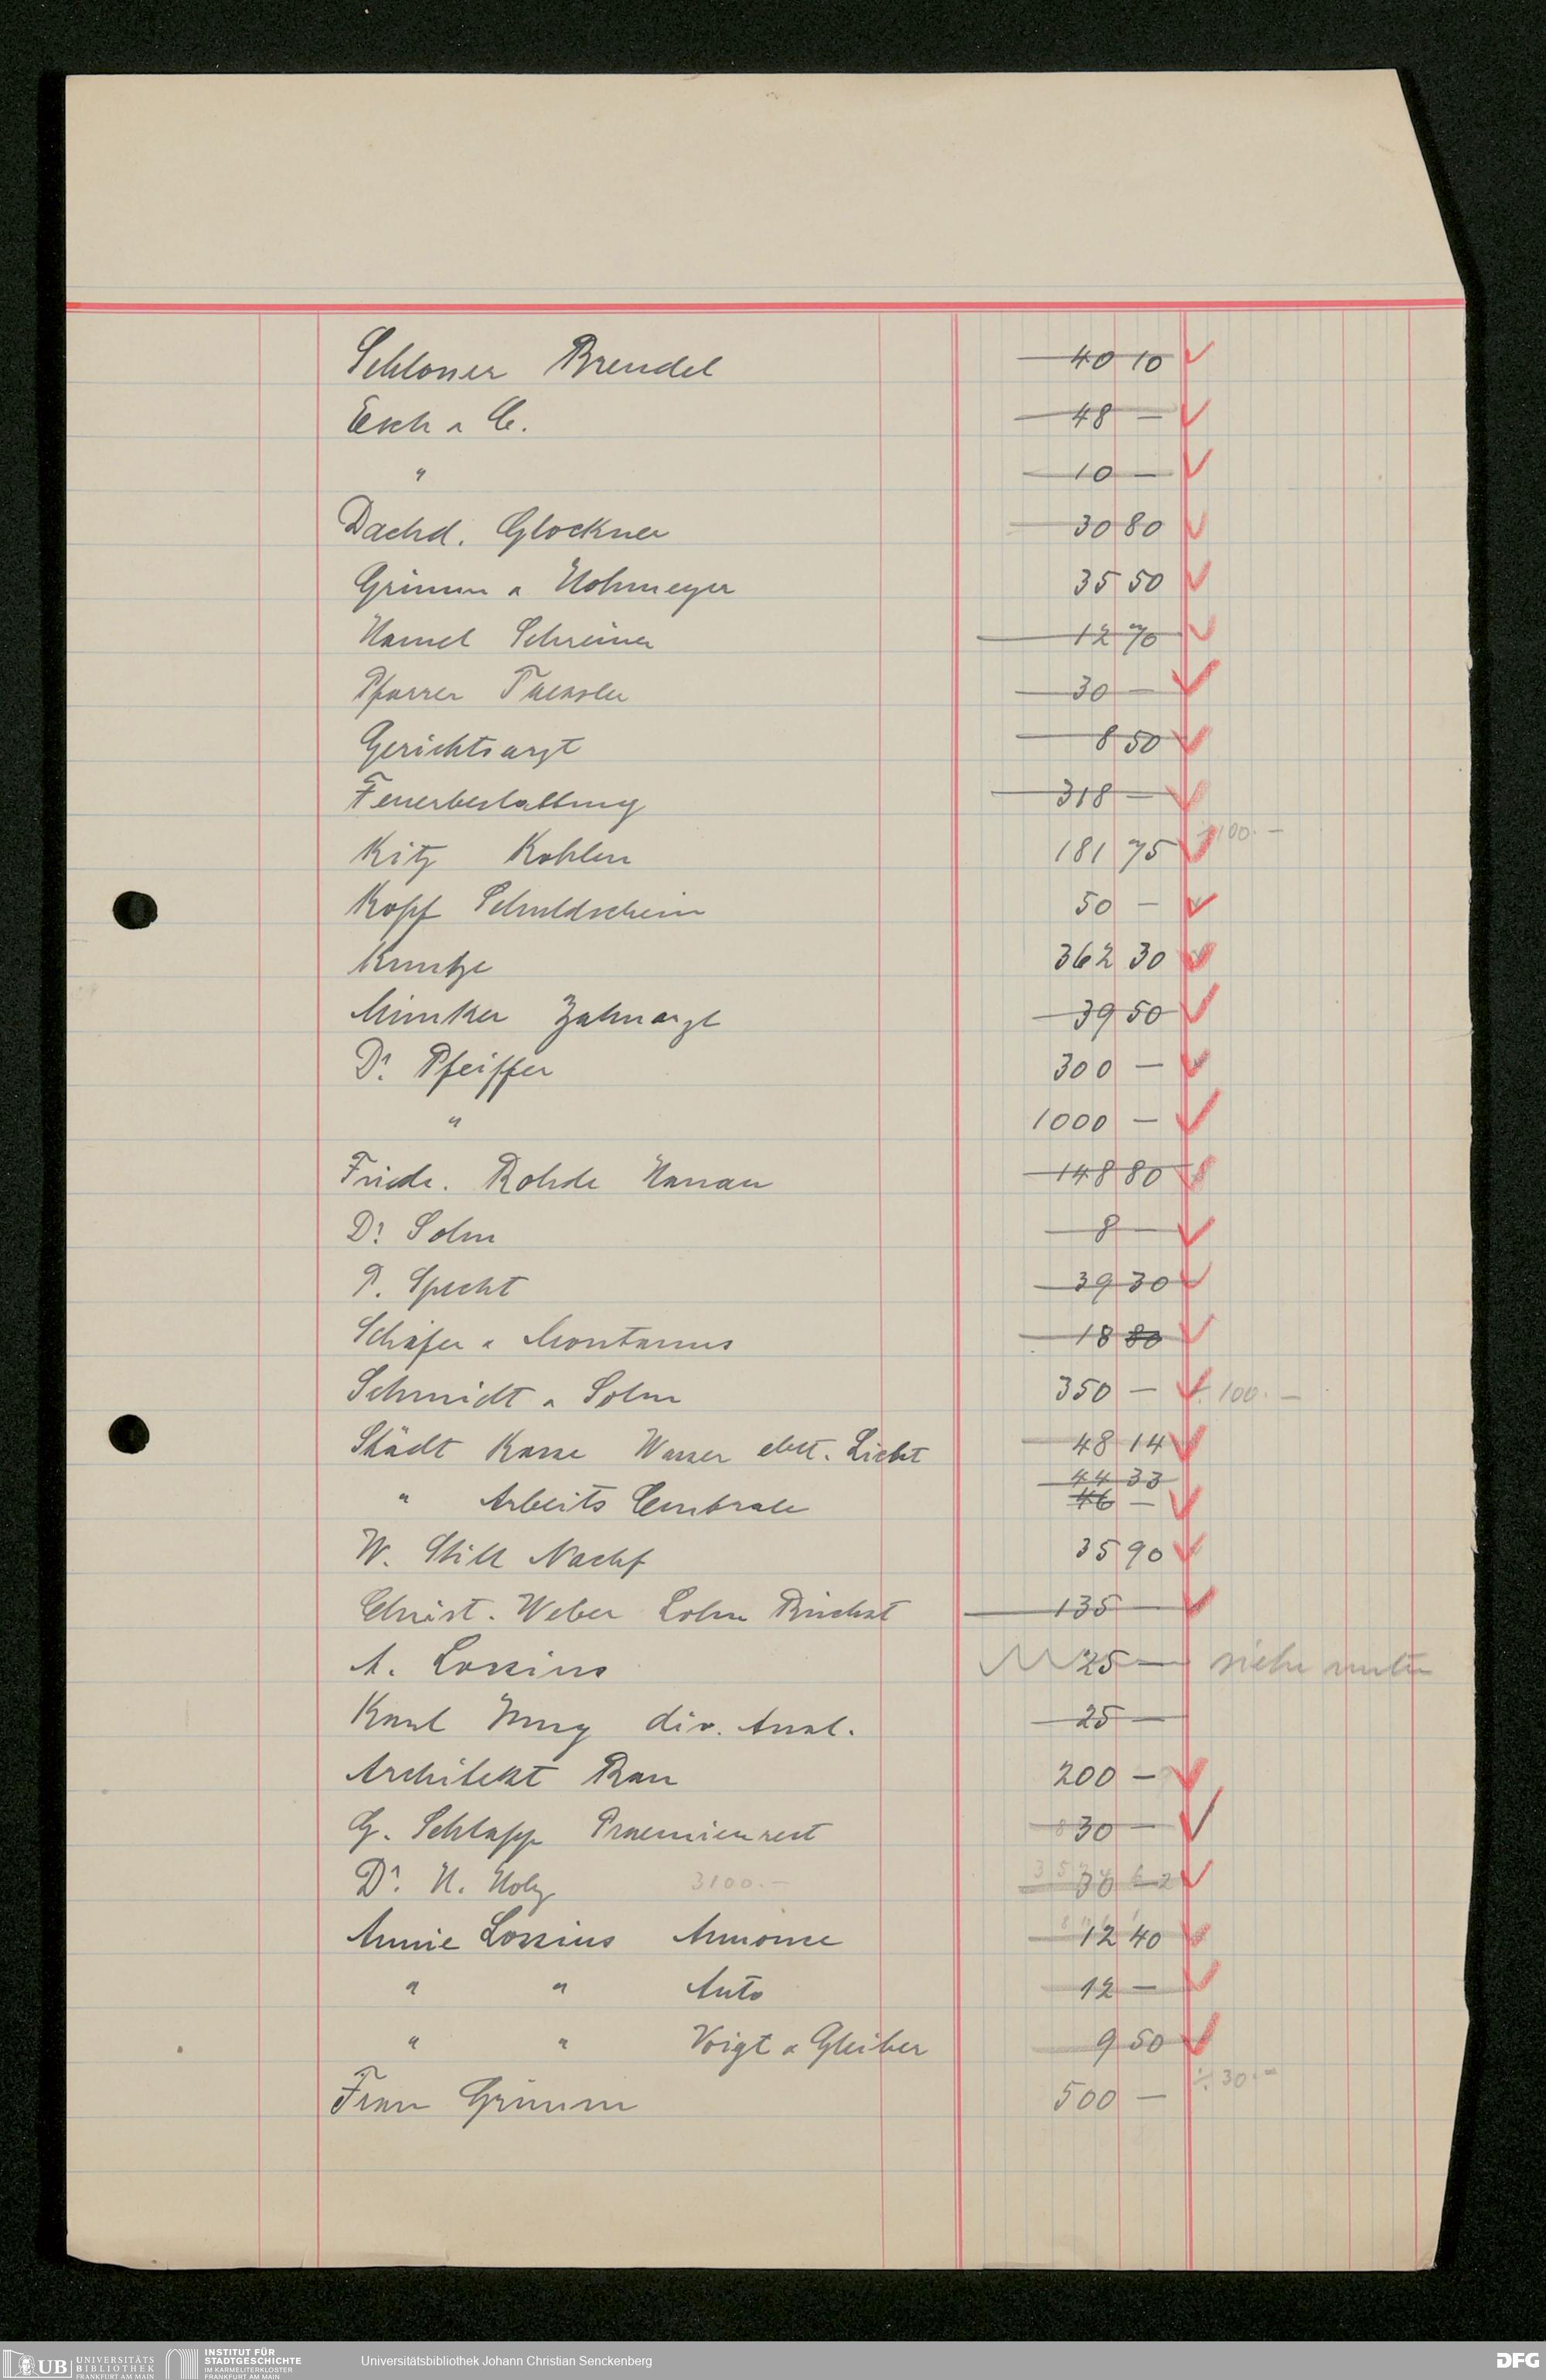 Schlosser Brendel 40 10
Esch & Co. 48 —
" 10 —
Dachd. Glockner 30 80
Grimm & Hohmeyer 35 50
Hamel Schreiner 12 70
Pfarrer Taesler 30 —
Gerichtsarzt 8 50
Feuerbestattung 318 —
÷ 100.—
Kitz Kohlen 181 75
Kopf Schuldschein 50 —
Kuntze 362 30
Münker Zahnarzt 39 50
Dr. Pfeiffer 300 —
" 1000 —
Friedr. Rohde Hanau 148 80
Dr. Sohn 8 —
P. Specht 39 30
Schäfer & Montanus 18 80
Schmidt & Sohn 350 — ÷ 100.—
Städt Kasse Wasser elekt. Licht 48 14
44 33
" Arbeits Centrale 46 —
W. Still Nachf 35 90
Christ. Weber Lohn 135 —
A. Lossius 25 — siehe unten
Karl Jung div. Ausl. 25 —
Architekt Rau 200 —
G. Schlapp Praemienrest 30 —
Dr. H. Holz 3100.— 30 —
Annie Lossius Annonce 12 40
" " Auto 12 —
" " Voigt & Gleiber 9 50
÷ 30.—
Frau Grimm 500 —
UB UNIVERSITÄTS
BIBLIOTHEK
FRANKFURT AM MAIN
INSTITUT FÜR
STADTGESCHICHTE
IM KARMELITERKLOSTER
FRANKFURT AM MAIN
Universitätsbibliothek Johann Christian Senckenberg
DFG